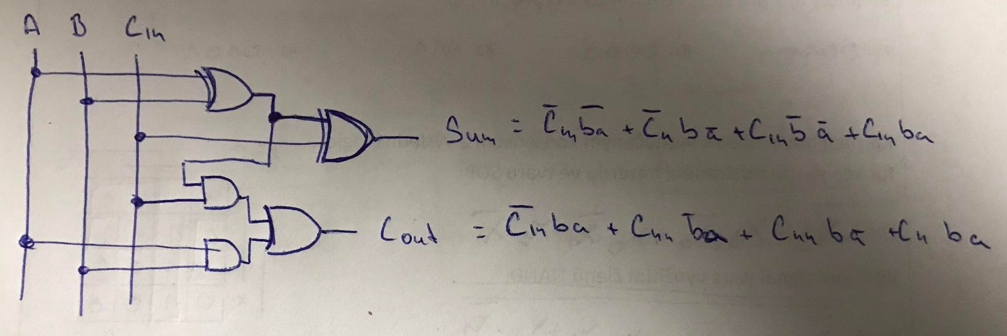 A B Cin
Sum = C̅in b̅a̅ + C̅in b a̅ + Cin b̅ a̅ + Cin ba
Cout = C̅in ba + Cin b̅a + Cin ba̅ + Cin ba